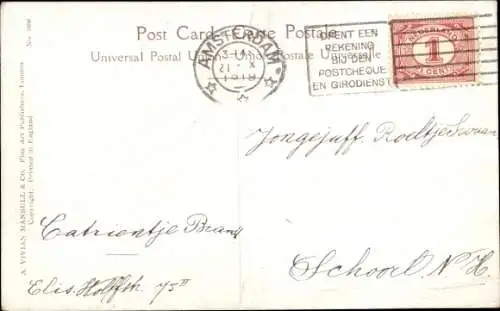 Post Card Carte Postale
Universal Postal Union Union Postale Universelle
AMSTERDAM
21 X
OPENT EEN
REKENING
BIJ DEN
POSTCHEQUE
EN GIRODIENST
NEDERLAND
1
CENT
A VIVIAN MANSELL & Co., Fine Art Publishers, London
Copyright. Printed in England
Jongejuff. Roeltje Swaan
Catrientje Brand
Schoorl N H.
Elis. Wolffstr. 75 II